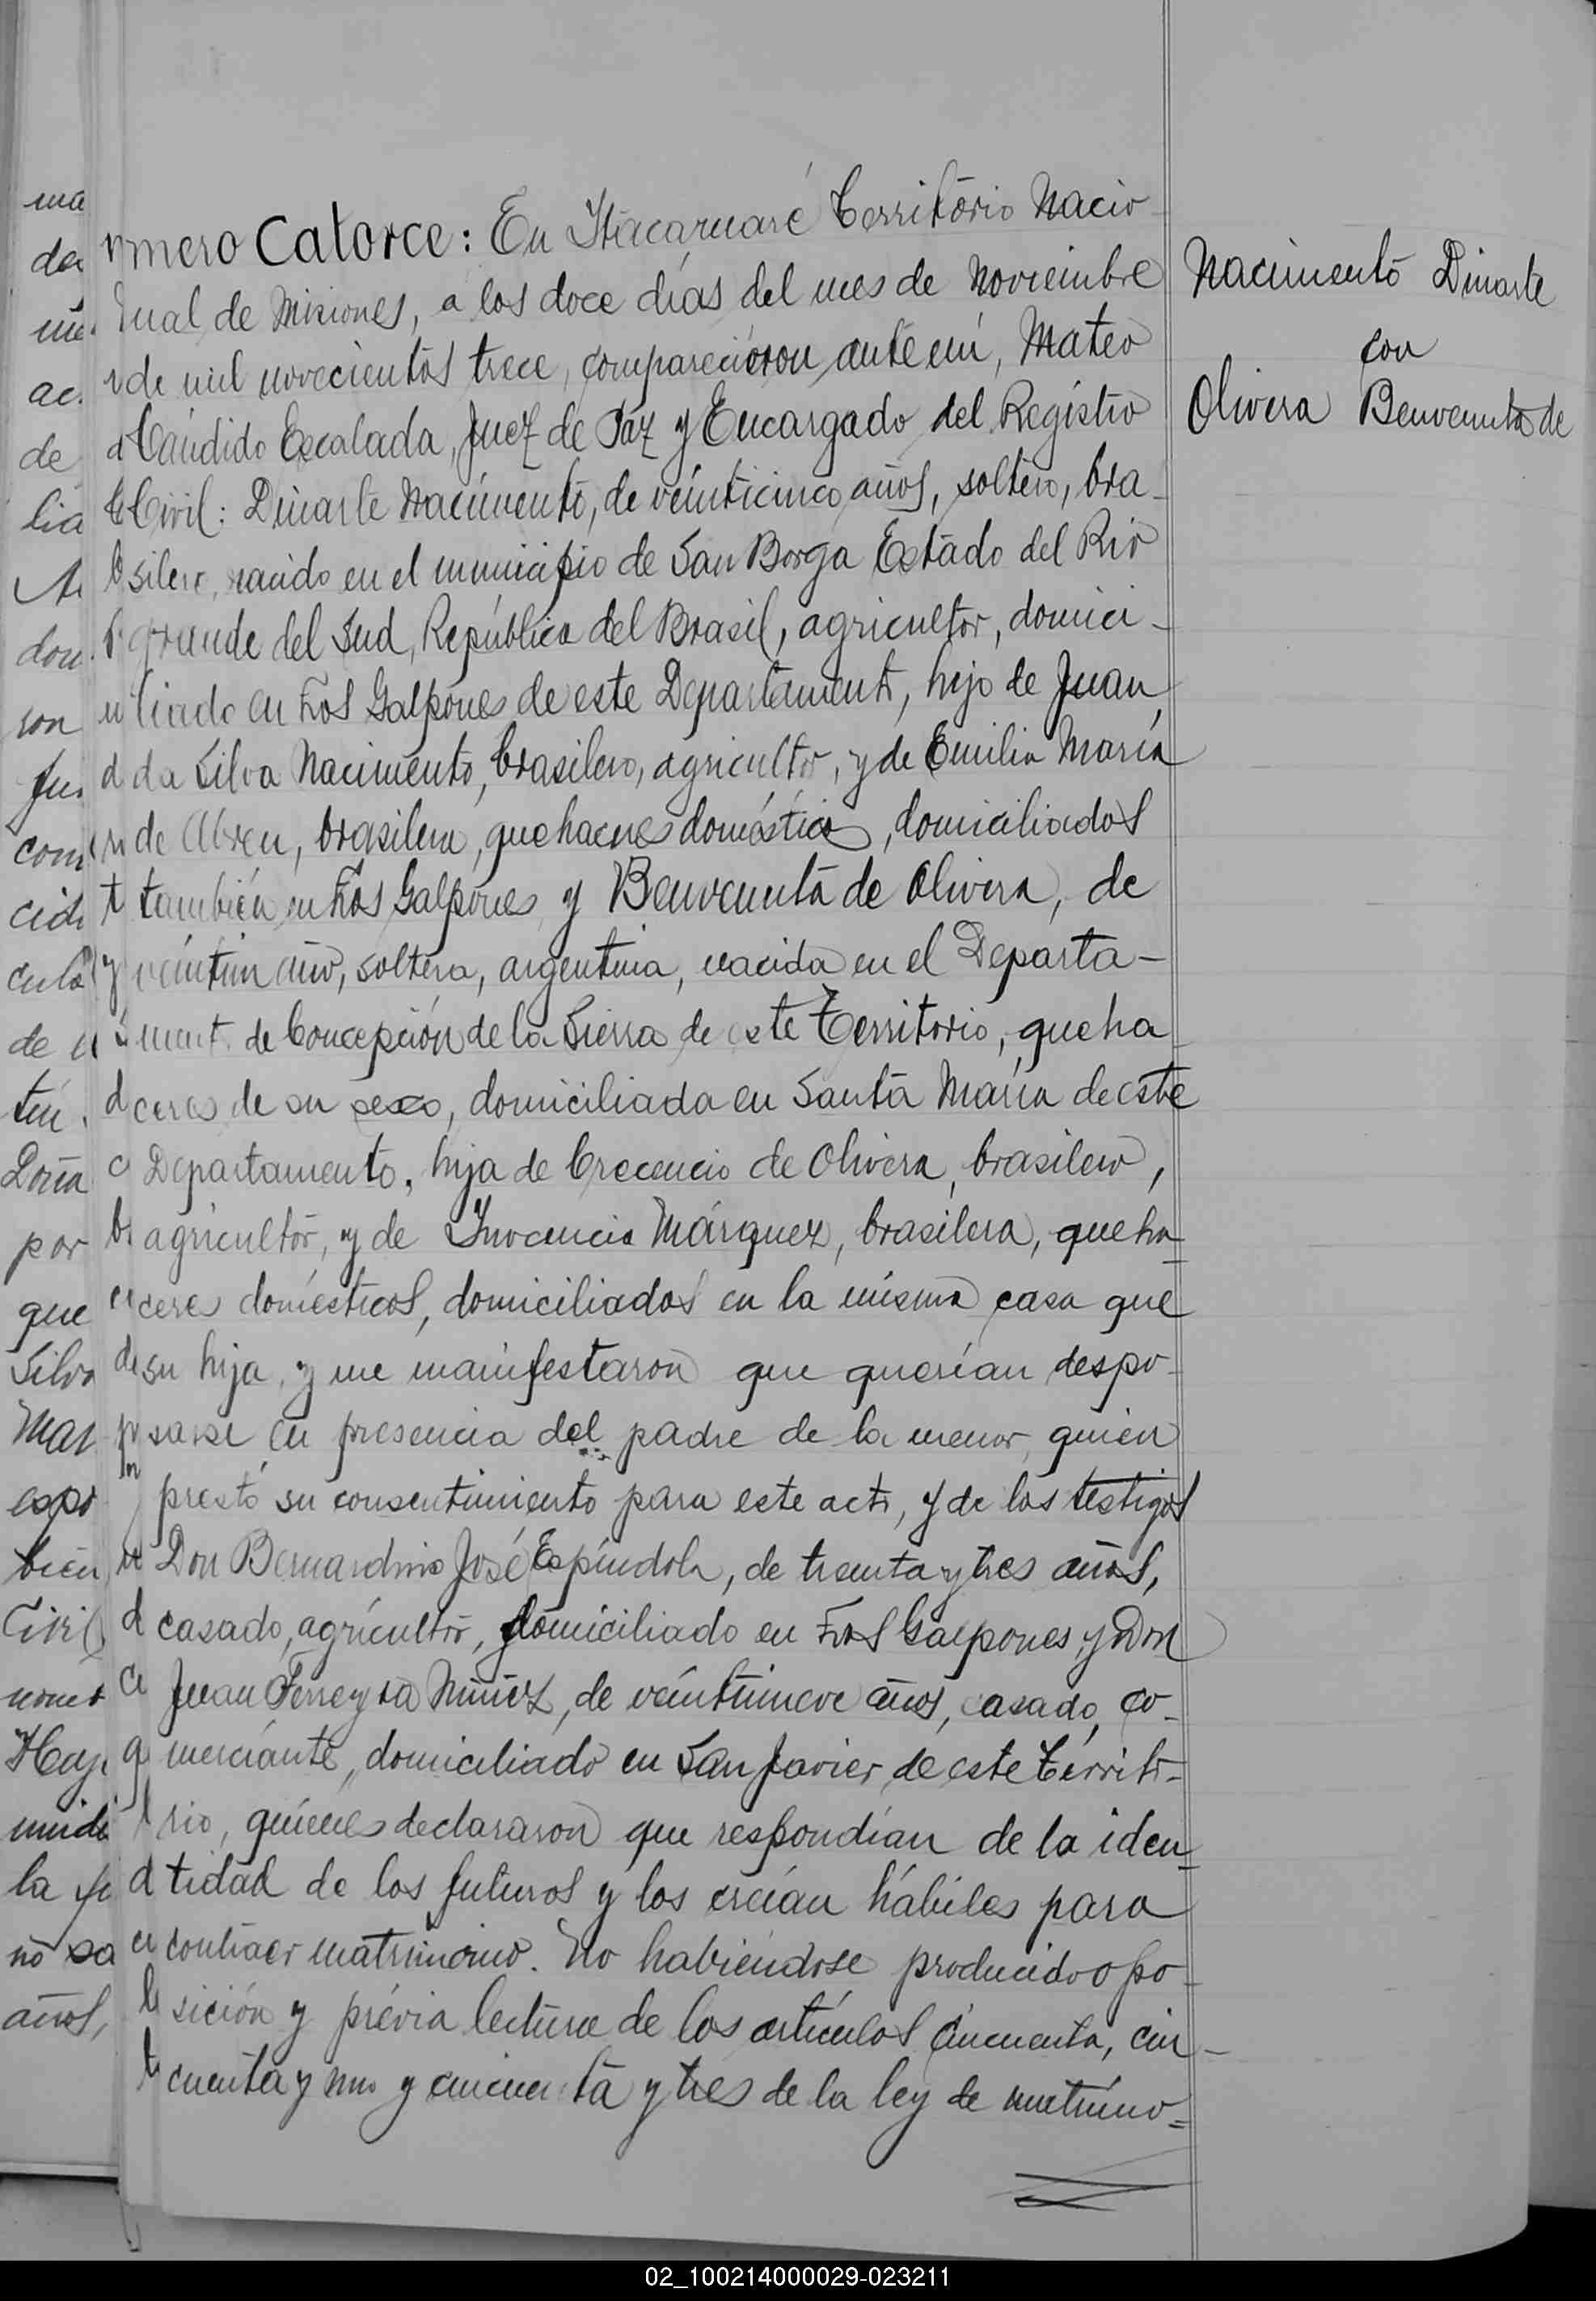 Número Catorce: En Itacaruaré Territorio Nacio-
nal de Misiones, a los doce días del mes de Noviembre
de mil novecientos trece, comparecieron ante mí, Mateo
Cándido Escalada, Juez de Paz y Encargado del Registro
Civil: Dinarte Nacimento, de veinticinco años, soltero, bra-
silero, nacido en el municipio de San Borga Estado del Rio
grande del Sud, República del Brasil, agricultor, domici-
liado en Los Galpones de este Departamento, hijo de Juan
da Silva Nacimento, brasilero, agricultor, y de Emilia María
de Abreu, brasilera, quehaceres domésticos, domiciliados
también en Los Galpones y Benvenuta de Olivera, de
veintiun año, soltera, argentina, nacida en el Departa-
mento de Concepción de la Sierra de este Territorio, queha-
ceres de su sexo, domiciliada en Santa María de este
Departamento, hija de Crecencio de Olivera, brasilero,
agricultor, y de Inocencia Márquez, brasilera, queha-
ceres domésticos, domiciliados en la misma casa que
su hija, y me manifestaron que querían despo-
sarse en presencia del padre de la menor, quien
prestó su consentimiento para este acto, y de los testigos
Don Bernardino José Espíndola, de treinta y tres años,
casado, agricultor, domiciliado en Los Galpones y Don
Juan Ferreyra Núñez, de veintinueve años, casado, co-
merciante, domiciliado en San Javier de este Territo-
rio, quienes declararon que respondían de la iden-
tidad de los futuros y los creían hábiles para
contraer matrimonio. No habiéndose producido opo-
sición y prévia lectura de los artículos cincuenta, cin-
cuenta y uno y cincuenta y tres de la ley de matrimo-
Nacimento Dinarte
con
Olivera Benvenuta de
02_100214000029-023211